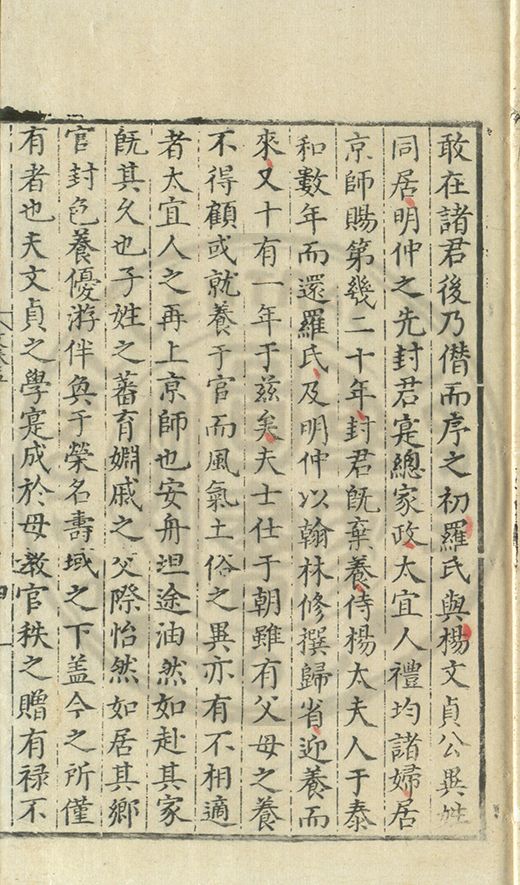 敢在諸君後乃僭而序之初羅氏與楊文貞公異姓
同居明仲之先封君寔總家政太宜人禮均諸婦居
京師賜第幾二十年封君既棄養侍楊太夫人于泰
和數年而還羅氏及明仲以翰林修撰歸省迎養而
來又十有一年于兹矣夫士仕于朝雖有父母之養
不得顧或就養于官而風氣土俗之異亦有不相適
者太宜人之再上京師也安舟坦途油然如赴其家
既其久也子姓之蕃育婣戚之交際怡然如居其鄉
官封色養優游伴奐于榮名壽域之下盖今之所僅
有者也夫文貞之學寔成於母教官秩之贈有禄不